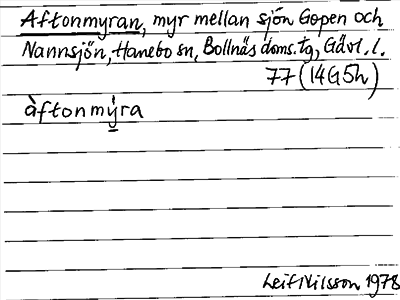 Aftonmyran, myr mellan sjön Gopen och
Nannsjön, Hanebo sn, Bollnäs doms. tg, Gävl. l.
77 (14G5h)
àftonmýra
Leif Nilsson 1978